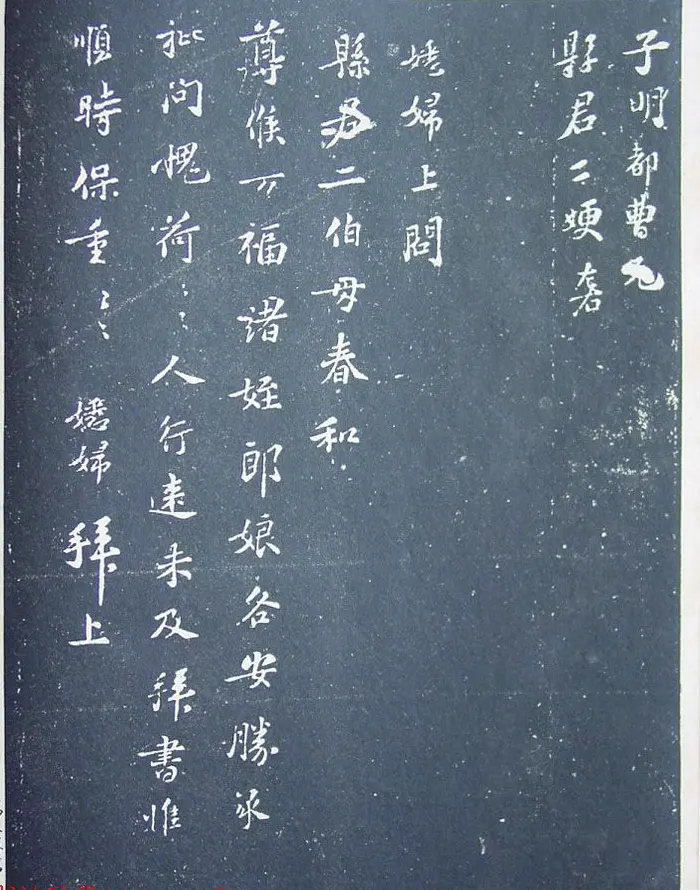 子明都曹兄
縣君二嫂
婦上問
縣君二伯母春和
尊候万福諸姪郎娘各安勝承
問愧荷〻人行速未及拜書惟
順時保重〻〻 婦拜上